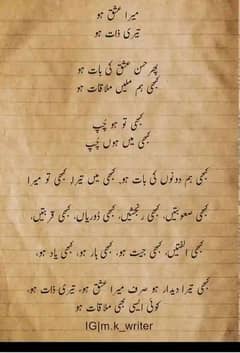 میرا عشق ہو
تیری ذات ہو
پھر حسن عشق کی بات ہو
کبھی ہم ملیں ملاقات ہو
کبھی تو ہو چُپ
کبھی میں ہوں چُپ
کبھی ہم دونوں کی بات ہو۔ کبھی میں تیرا، کبھی تو میرا
کبھی صعوبتیں، کبھی رنجشیں، کبھی دُوریاں، کبھی قربتیں،
کبھی الفتیں، کبھی جیت ہو، کبھی ہار ہو، کبھی یاد ہو،
کبھی تیرا دیدار ہو صرف میرا عشق ہو، تیری ذات ہو،
کوئی ایسی بھی ملاقات ہو
IG|m.k_writer